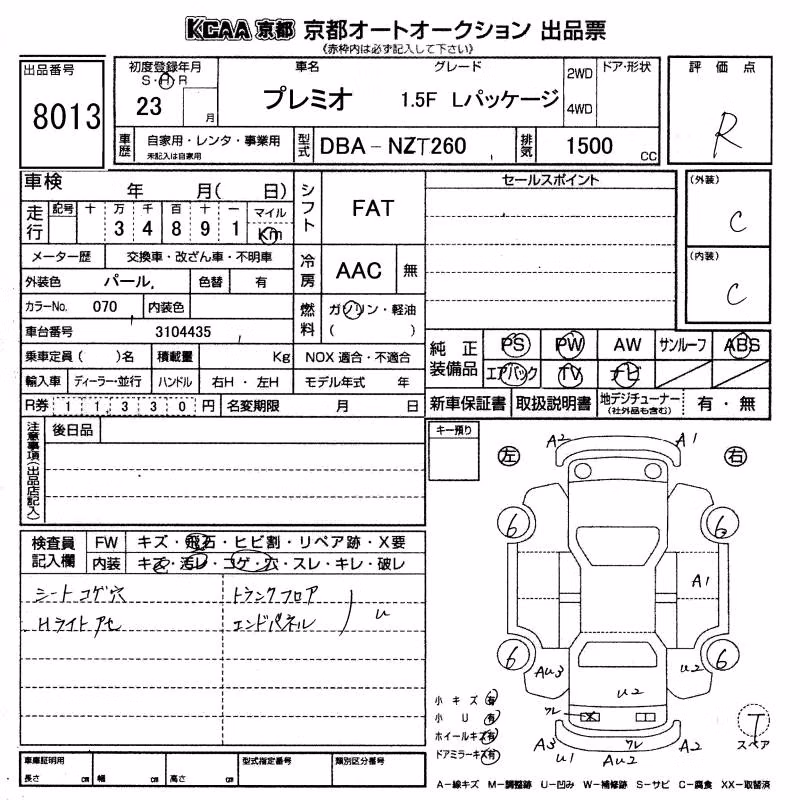 KCAA 京都 京都オートオークション 出品票
《赤枠内は必ず記入して下さい》
出品番号
8013
初度登録年月
S・H・R
23 月
車名 グレード
プレミオ 1.5F Lパッケージ
2WD
4WD
ドア・形状
評価点
R
車歴 自家用・レンタ・事業用
未記入は自家用
型式 DBA-NZT260
排気 1500 CC
車検 年 月( 日)
走行 記号 十 万 千 百 十 一 マイル
3 4 8 9 1 Km
メーター歴 交換車・改ざん車・不明車
外装色 パール. 色替 有
カラーNo. 070 内装色
車台番号 3104435
乗車定員( )名 積載量 Kg
輸入車 ディーラー・並行 ハンドル 右H・左H
R券 11,330円 名変期限 月 日
シフト FAT
冷房 AAC 無
燃料 ガソリン・軽油
( )
NOX 適合・不適合
モデル年式 年
セールスポイント
(外装)
C
(内装)
C
純正装備品 PS PW AW サンルーフ ABS
エアバック TV ナビ
新車保証書 取扱説明書 地デジチューナー 有・無
(社外品も含む)
注意事項(出品店記入)
後日品
キー預り
検査員記入欄 FW キズ・飛石・ヒビ割・リペア跡・X要
内装 キズ・汚レ・コゲ・穴・スレ・キレ・破レ
シートコゲ穴 トランクフロア
Hライトアセ エンドパネル ) u
左 A2 A1 右
6 6
A1
6 6
Au3 u2 u2
フレ X
A3 u1 フレ Au2 A2
小キズ 有
小U 有
ホイールキズ 有
ドアミラーキズ 有
T
スペア
車庫証明用
長さ cm 幅 cm 高さ cm
型式指定番号 類別区分番号
A-線キズ M-調整跡 U-凹み W-補修跡 S-サビ C-腐食 XX-取替済